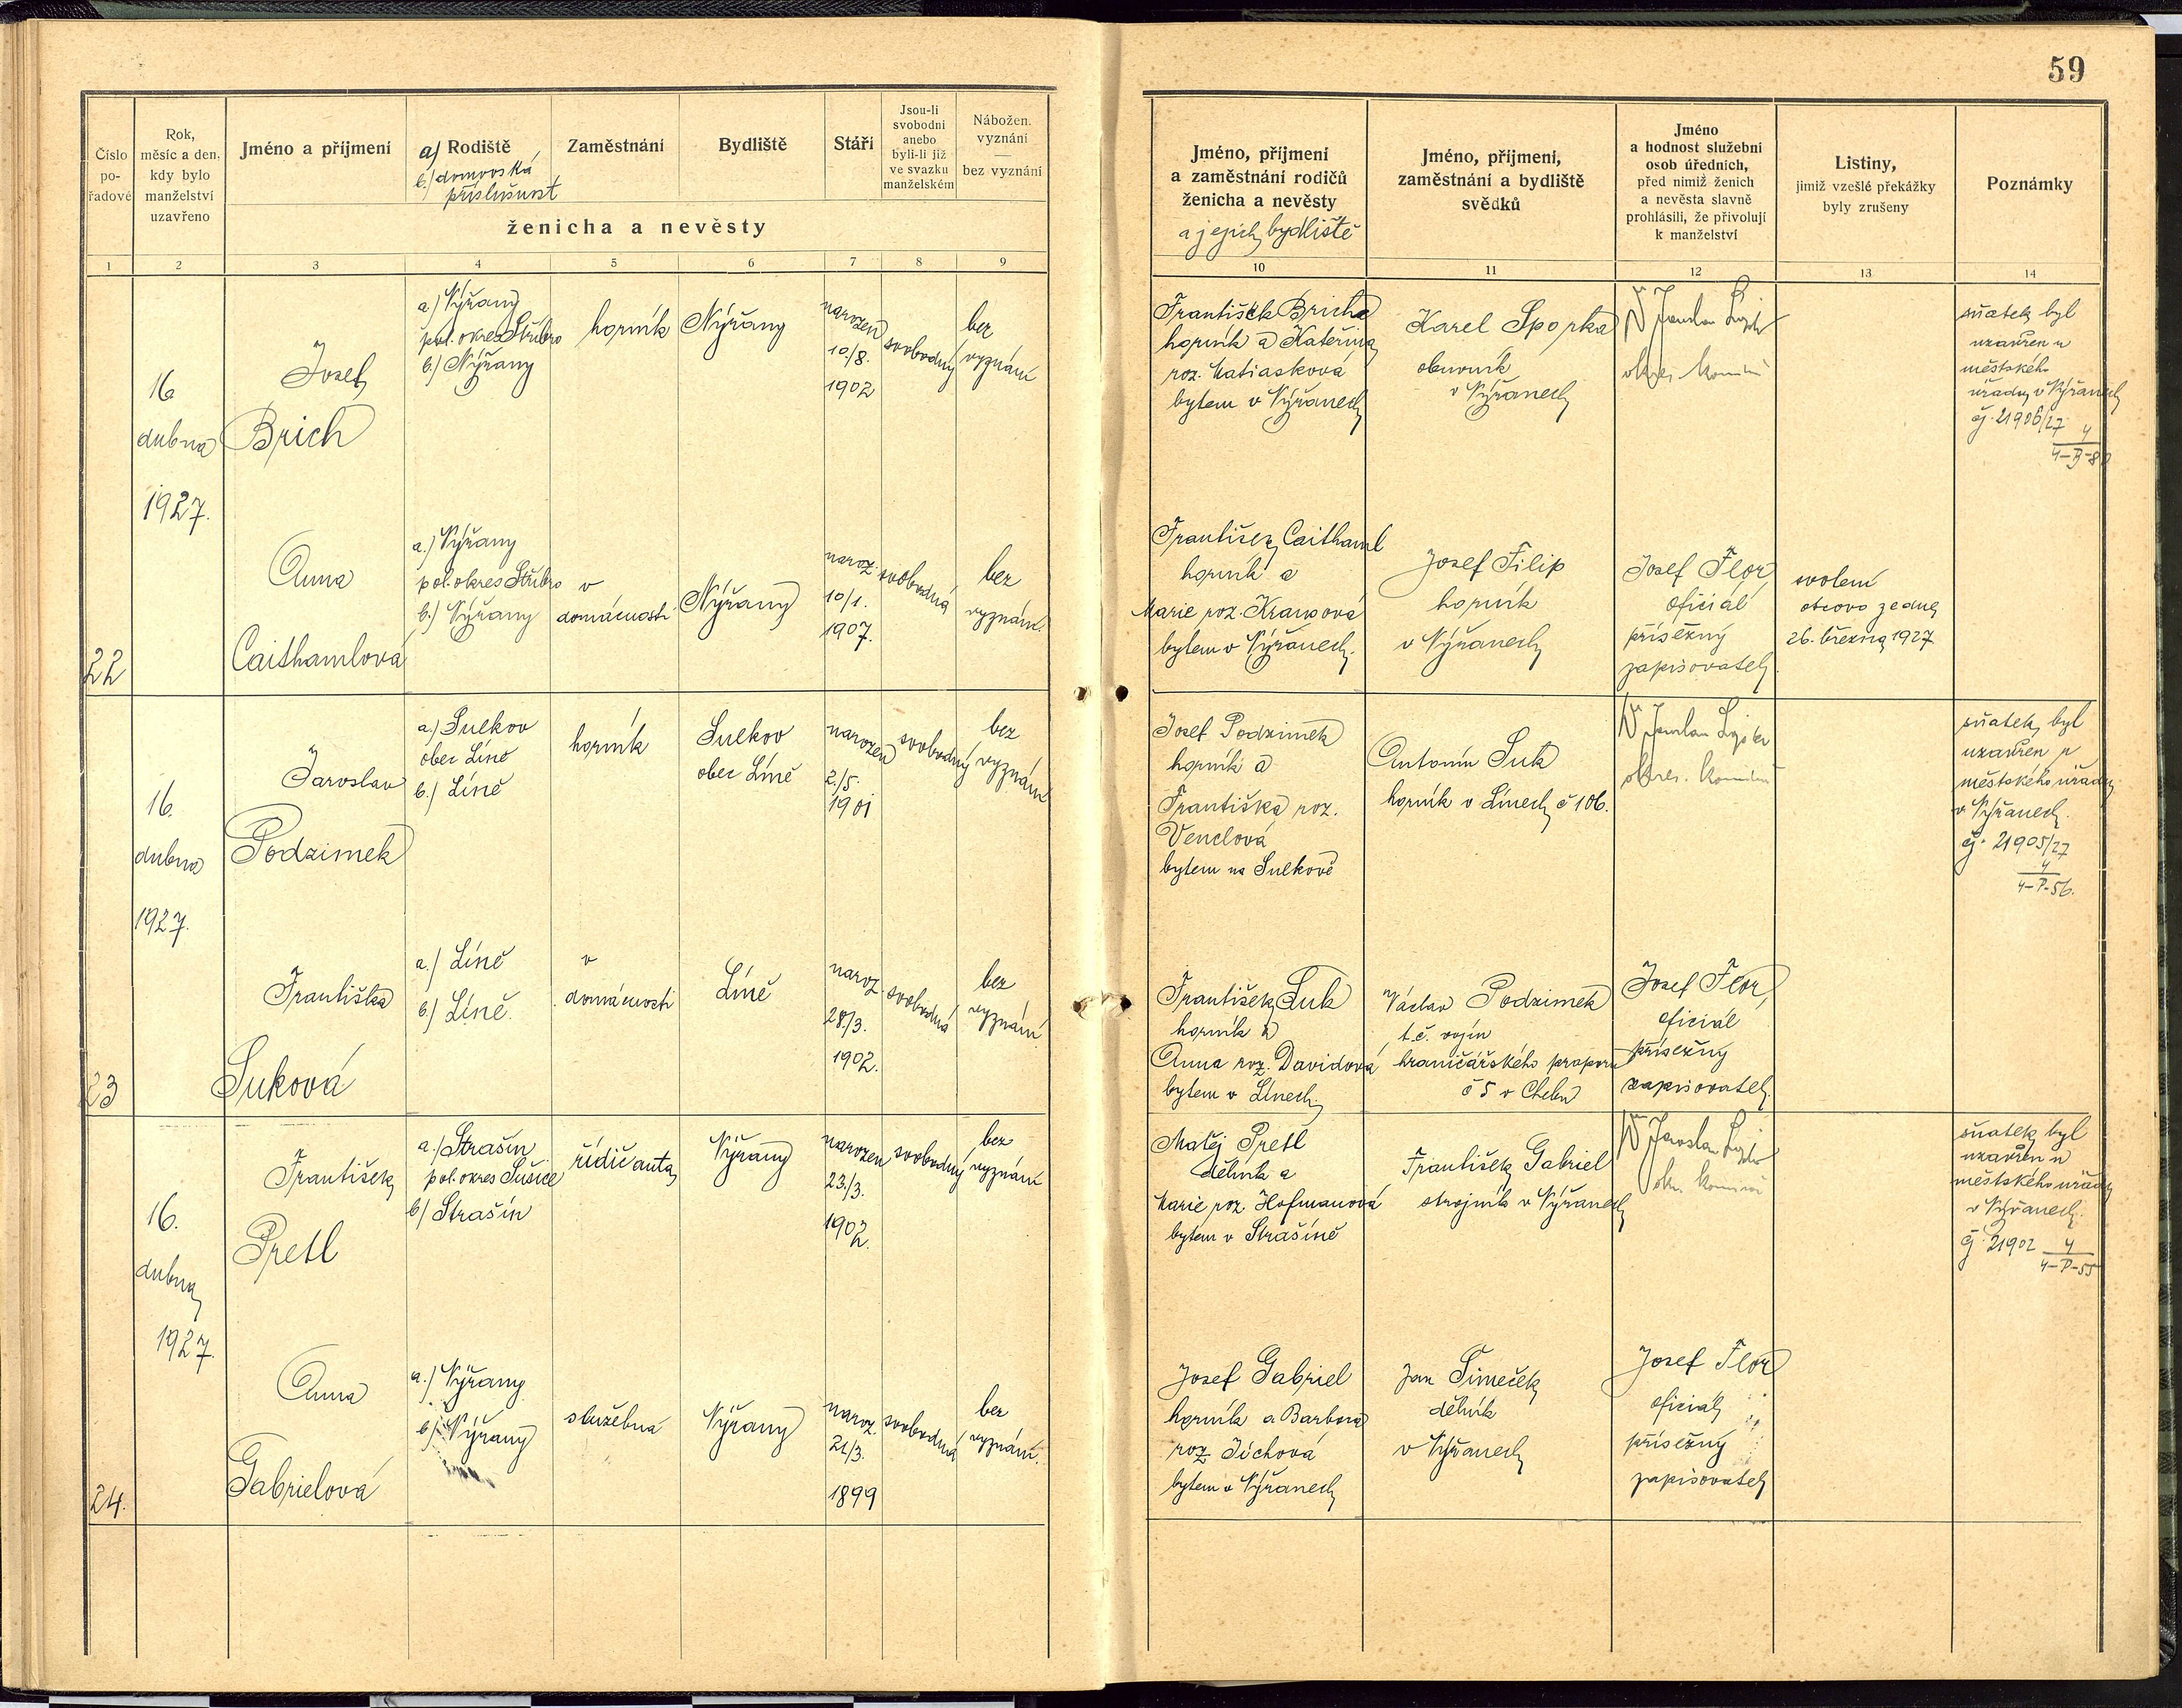 59
Číslo pořadové
Rok, měsíc a den, kdy bylo manželství uzavřeno
Jméno a příjmení
a) Rodiště
b.) domovská příslušnost
Zaměstnání
Bydliště
Stáří
Jsou-li svobodni anebo byli-li již ve svazku manželském
Nábožen. vyznání — bez vyznání
ženicha a nevěsty
Jméno, příjmení a zaměstnání rodičů ženicha a nevěsty
a jejich bydliště
Jméno, příjmení, zaměstnání a bydliště svědků
Jméno a hodnost služební osob úředních, před nimiž ženich a nevěsta slavně prohlásili, že přivolují k manželství
Listiny, jimiž vzešlé překážky byly zrušeny
Poznámky
1 2 3 4 5 6 7 8 9 10 11 12 13 14
22
16
dubna
1927.
Josef
Brich
a.) Nýřany
pol. okres Stříbro
b.) Nýřany
horník
Nýřany
narozen
10./8.
1902
svobodný
bez
vyznání
František Bricha
horník a Kateřina
roz. Matiasková
bytem v Nýřanech
Karel Sporka
obuvník
v Nýřanech
Dr Jaroslav
okres. komisař
sňatek byl
uzavřen u
městského
úřadu v Nýřanech
čj. 21906/27 4
4-B-8
Anna
Caithamlová
a.) Nýřany
pol. okres Stříbro
b.) Nýřany
v
domácnosti
Nýřany
naroz.
10/1.
1907.
svobodná
bez
vyznání.
František Caithaml
horník a
Marie roz. Krausová
bytem v Nýřanech.
Josef Filip
horník
v Nýřanech
Josef Flor,
oficiál
přísežný
zapisovatel
svolení
otcovo ze dne
26. března 1927
23
16.
dubna
1927.
Jaroslav
Podzimek
a.) Sulkov
obec Líně
b.) Líně
horník
Sulkov
obec Líně
narozen
2./5.
1901
svobodný
bez
vyznání
Josef Podzimek
horník a
Františka roz.
Venclová
bytem na Sulkově
Antonín Suk
horník v Línech č 106.
Dr Jaroslav
okres. komisař
sňatek byl
uzavřen u
městského úřadu
v Nýřanech.
čj. 21905/27
4
4-P-56.
Františka
Suková
a.) Líně
b.) Líně.
v
domácnosti
Líně
naroz.
28./3.
1902.
svobodná
bez
vyznání
František Suk
horník a
Anna roz. Davidová
bytem v Línech.
Václav Podzimek
t.č. vojín
hraničářského praporu
č 5 v Chebu
Josef Flor,
oficiál
přísežný
zapisovatel.
24.
16.
dubna
1927.
František
Pretl
a.) Strašín
pol. okres Sušice
b) Strašín
řidič auta
Nýřany
narozen
23./3.
1902.
svobodný
bez
vyznání
Matěj Pretl
dělník a
Marie roz. Hofmanová
bytem v Strašíně
František Gabriel
strojník v Nýřanech
Dr Jaroslav
okr. komisař
sňatek byl
uzavřen u
městského úřadu
v Nýřanech.
čj. 21902 4
4-P-55
Anna
Gabrielová
a.) Nýřany
b.) Nýřany
služebná
Nýřany
naroz.
21/3.
1899
svobodná
bez
vyznání.
Josef Gabriel
horník a Barbora
roz. Jíchová
bytem v Nýřanech
Jan Šimeček
dělník
v Nýřanech
Josef Flor
oficiál
přísežný
zapisovatel